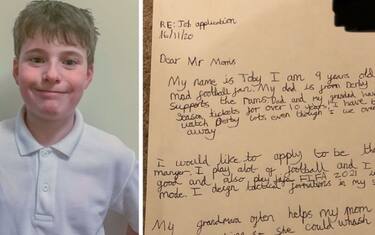 RE: Job application
16/11/20
Dear Mr Morris
My name is Toby I am 9 years old
mad football fan. My dad is from Derby
supports the rams. Dad and my grandad have
Season tickets for over 10 years. I have to
watch Derby lots even though we
away
I would like to apply to be the
manger. I play alot of football and I
good and I also play FIFA 2021 in
mode. I deign tactical formations in my s
My grandma often helps my mom
so she could whash